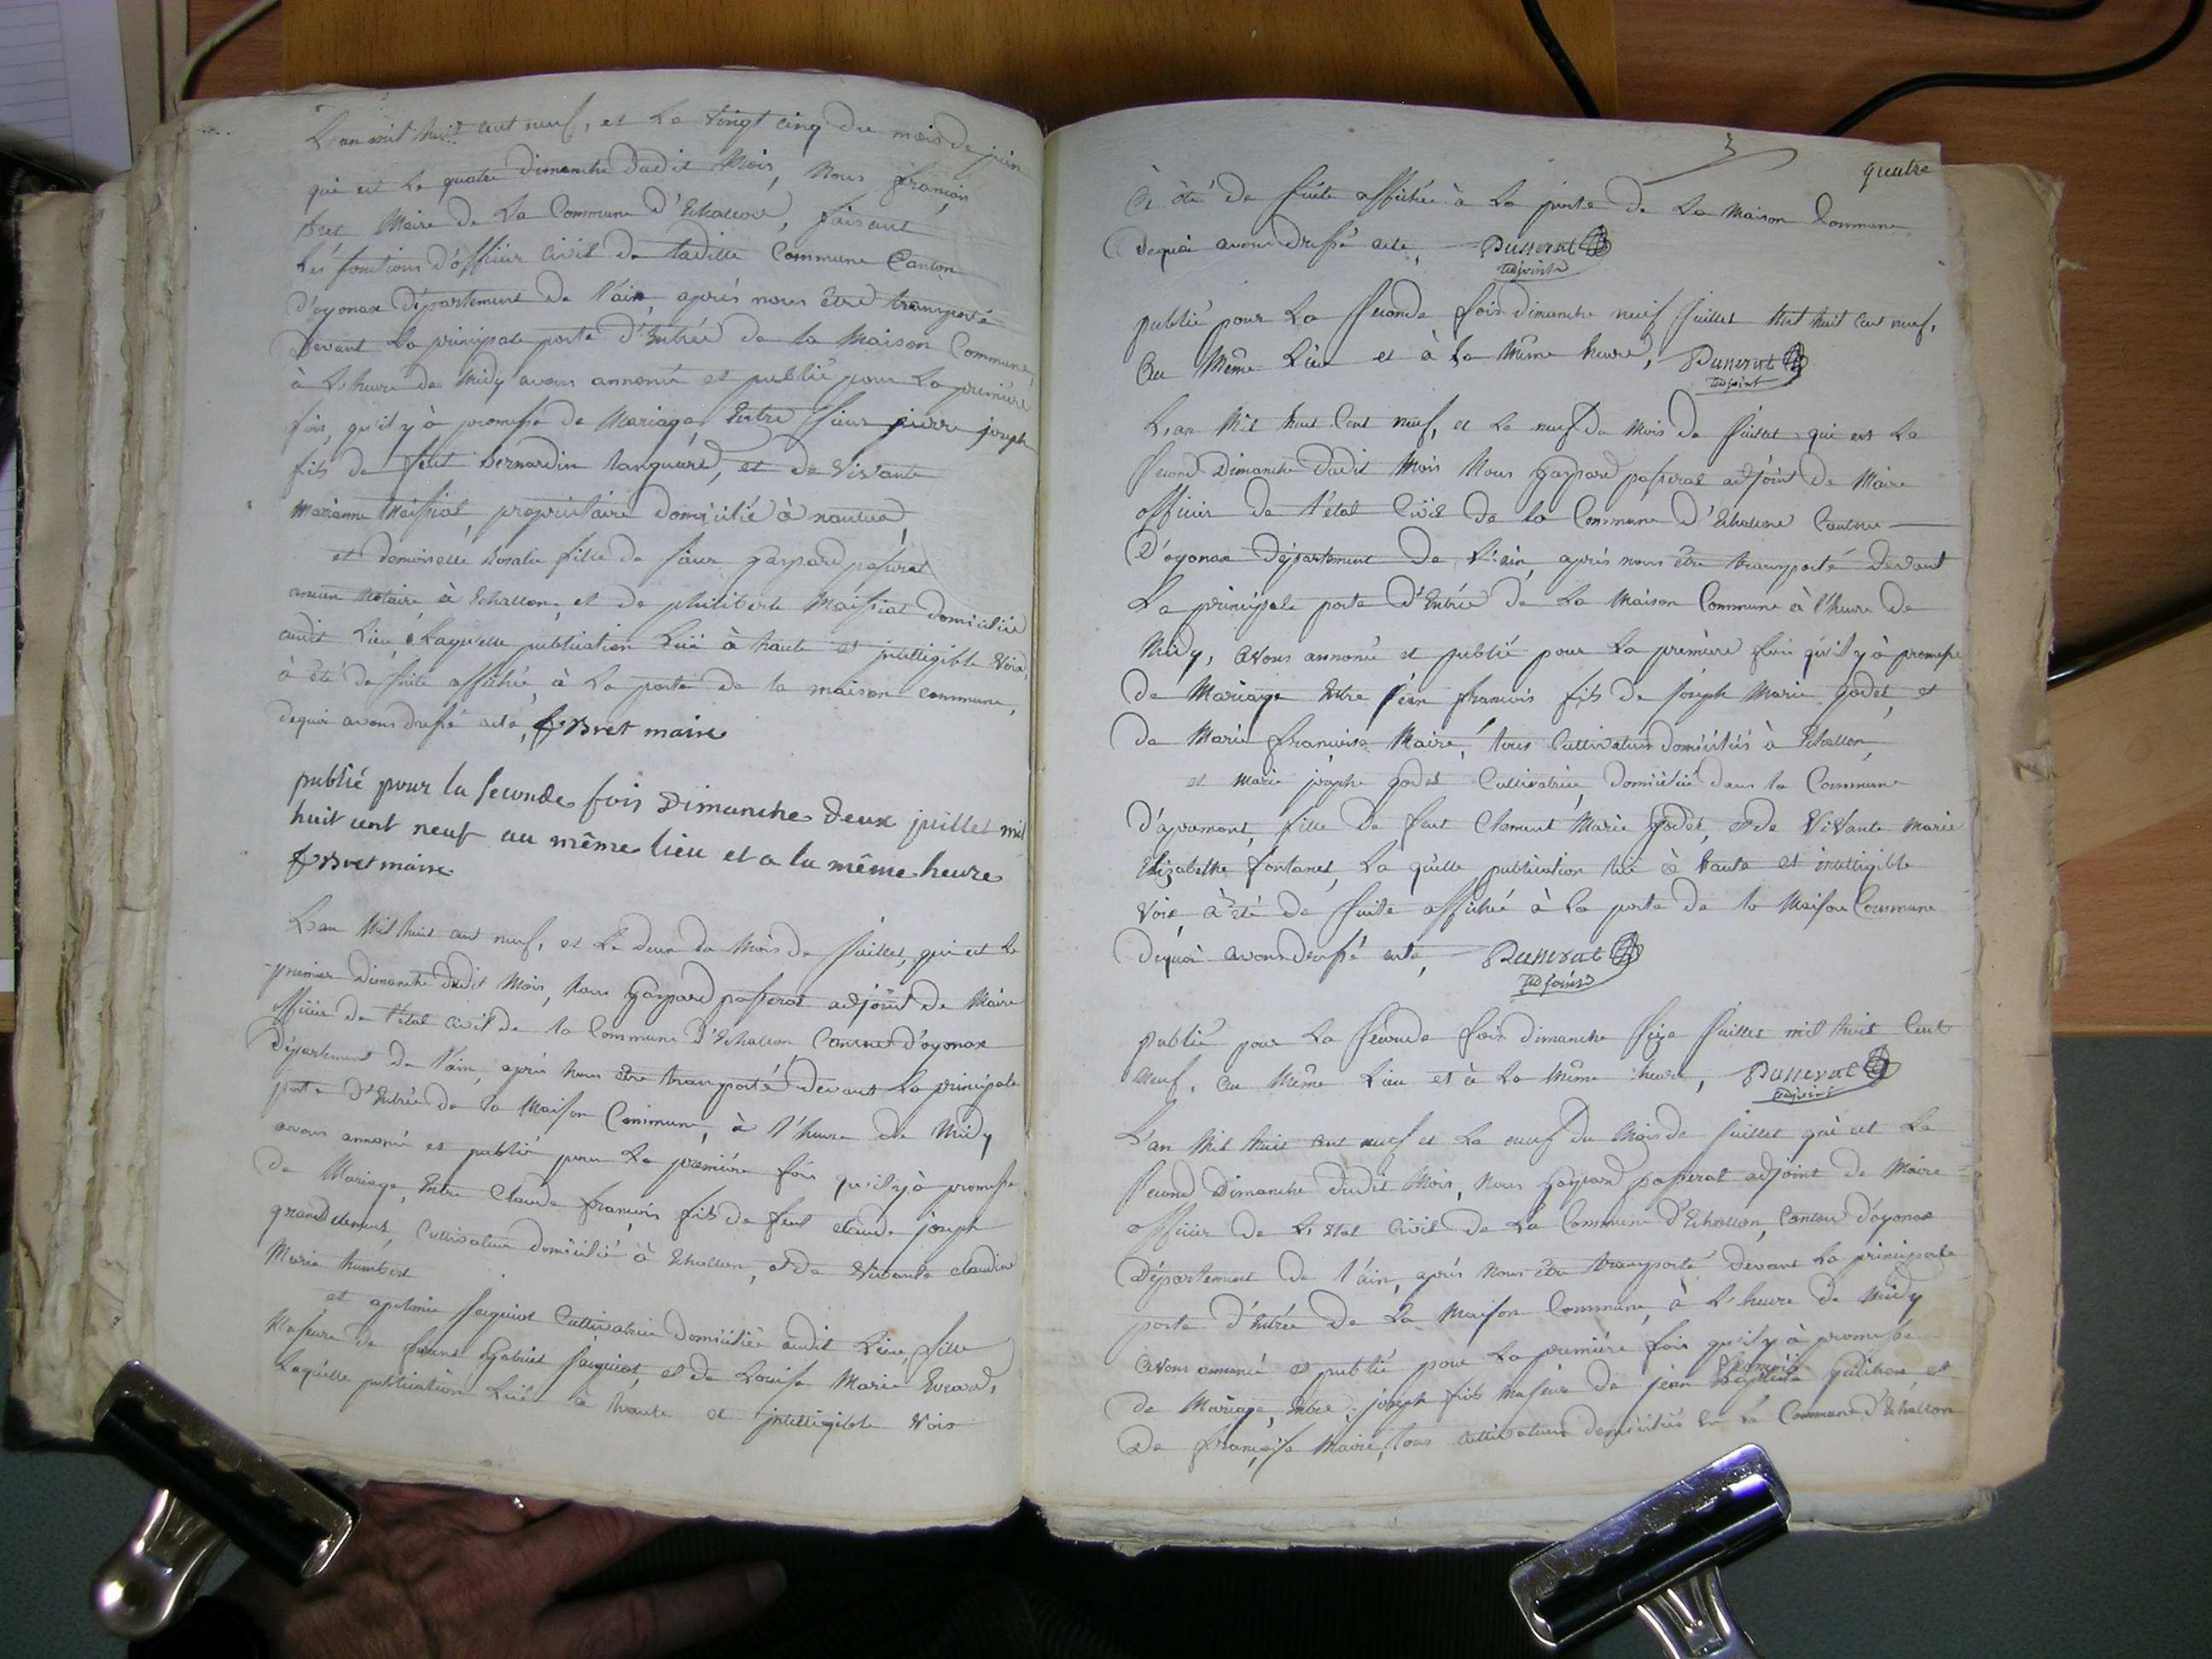 L'an mil huit cent neuf, et le vingt cinq du mois de juin
qui est le quatre dimanche dudit Mois, Nous françois
Bret Maire de la Commune d'Echallon, faisant
les fonctions d'officier civil de laditte Commune Canton
d'oyonax département de l'ain, après nous être transporté
devant la principale porte d'Entrée de la Maison Commune,
à l'heure de Midy avons annoncé et publié pour la première
fois, qu'il y à promesse de Mariage Entre sieur pierre joseph
fils de feut Bernardin tanquard, et de vivante
marianne Maissiat, propriétaire domicilié à nantua,
et demoiselle Rosalie fille de sieur gaspard passerat
ancien Notaire à Echallon, et de philiberte Maissiat domiciliée
audit lieu, Laquelle publication luë à haute et intelligible voix,
à été de suite affichée à la porte de la maison commune,
dequoi avons dressé acte, f Bret maire
publié pour la seconde fois Dimanche deux juillet mil
huit cent neuf au même lieu et a la même heure
f Bret maire
L'an Mil huit cent neuf, et le deux du Mois de Juillet, qui est le
premier Dimanche dudit Mois, Nous Gaspard passerat adjoint de Maire
officier de l'état civil de la Commune d'Echallon Canton d'oyonax
Département de l'ain, après nous être transporté devant la principale
porte d'Entrée de la Maison Commune, à l'heure de Midy
avons annoncé et publié pour la première fois qu'il y à promesse
de Mariage, Entre Claude françois fils de feut claude joseph
grandclement, Cultivateur domicilié à Echallon, et de vivante claudine
Marie humbert
et apolonie Jacquiot Cultivatrice domiciliée audit Lieu, fille
Majeure de Gabriel Jacquiot, et de Louise Marie Evrard,
Laquelle publication luë à haute et intelligible voix
quatre
à été de suite affichée à la porte de la Maison Commune
dequoi avons dressé acte, Passerat
adjoint
publié pour la seconde fois dimanche neuf Juillet Mil huit cent neuf,
au Même Lieu et à la même heure, Passerat
adjoint
L'an Mil huit Cent Neuf, et le neuf du Mois de Juillet qui est le
second Dimanche dudit Mois Nous Gaspard passerat adjoint de Maire
officier de l'état Civil de la Commune d'Echallon Canton
D'oyonax Département de L'ain, après nous être transporté devant
la principale porte d'Entrée de la Maison Commune à l'heure de
Midy, avons annoncé et publié pour la première fois qu'il y à promesse
de Mariage Entre jean françois fils de joseph Marie godet, et
de Marie françoise Maire, tous Cultivateurs domiciliés à Echallon,
et marie josephe godet Cultivatrice, domiciliée dans la Commune
d'apremont, fille de feut Clement Marie Godet, et de ViVante Marie
Elizabethe fontanet, la quelle publication luë à haute et intelligible
Voix à été de suite affichée à la porte de la Maison Commune
dequoi avons dressé acte, Passerat
adjoint
publié pour la seconde fois dimanche seize Juillet mil huit Cent
neuf, au Même Lieu et à la Même heure, Passerat
adjoint
L'an Mil huit cent neuf et le neuf du Mois de Juillet qui est le
second Dimanche dudit Mois, Nous Gaspard passerat adjoint de Maire
officier de L'état Civil de la Commune d'Echallon, Canton d'oyonax
Département de l'ain, après Nous être transporté devant la principale
porte d'Entrée de la Maison Commune, à L'heure de Midy
avons annoncé et publié pour la première fois qu'il y à promesse
françois
de Mariage, Entre joseph fils majeur de jean et
de françoise Maire, tous cultivateurs domiciliés en la Commune d'Echallon